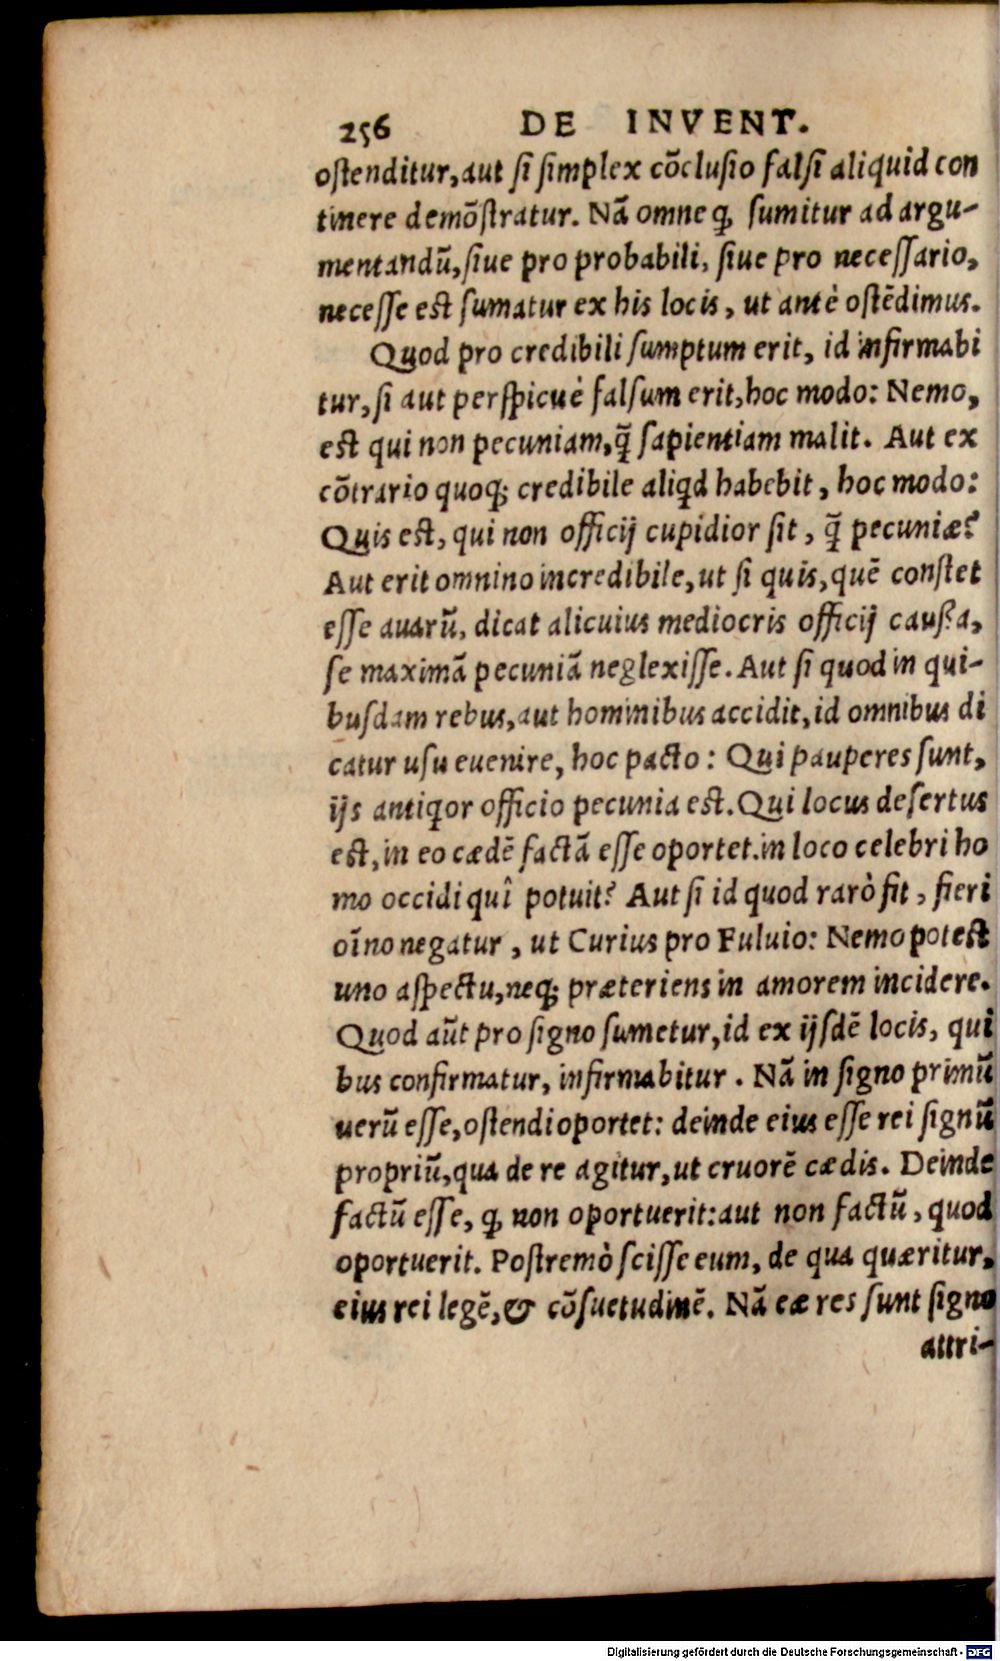 256 DE INVENT.
ostenditur, aut si simplex cōclusio falsi aliquid con
tinere demōstratur. Nā omne ꝙ sumitur ad argu-
mentandū, siue pro probabili, siue pro necessario,
necesse est sumatur ex his locis, ut antè ostēdimus.
Quod pro credibili sumptum erit, id infirmabi
tur, si aut perspicuè falsum erit, hoc modo: Nemo,
est qui non pecuniam, q̃ sapientiam malit. Aut ex
cōtrario quoq; credibile aliqd habebit, hoc modo:
Quis est, qui non officij cupidior sit, q̃ pecuniæ?
Aut erit omnino incredibile, ut si quis, quē constet
esse auarū, dicat alicuius mediocris officij caussa,
se maximā pecuniā neglexisse. Aut si quod in qui-
busdam rebus, aut hominibus accidit, id omnibus di
catur usu euenire, hoc pacto: Qui pauperes sunt,
ijs antiqor officio pecunia est. Qui locus desertus
est, in eo cædē factā esse oportet. in loco celebri ho
mo occidi quî potuit? Aut si id quod rarò fit, fieri
oīno negatur, ut Curius pro Fuluio: Nemo potest
uno aspectu, neq; præteriens in amorem incidere.
Quod aūt pro signo sumetur, id ex ijsdē locis, qui
bus confirmatur, infirmabitur. Nā in signo primū
uerū esse, ostendi oportet: deinde eius esse rei signū
propriū, qua de re agitur, ut cruorē cædis. Deinde
factū esse, ꝙ non oportuerit: aut non factū, quod
oportuerit. Postremò scisse eum, de qua quæritur,
eius rei legē, & cōsuetudinē. Nā eæ res sunt signo
attri-
Digitalisierung gefördert durch die Deutsche Forschungsgemeinschaft - DFG